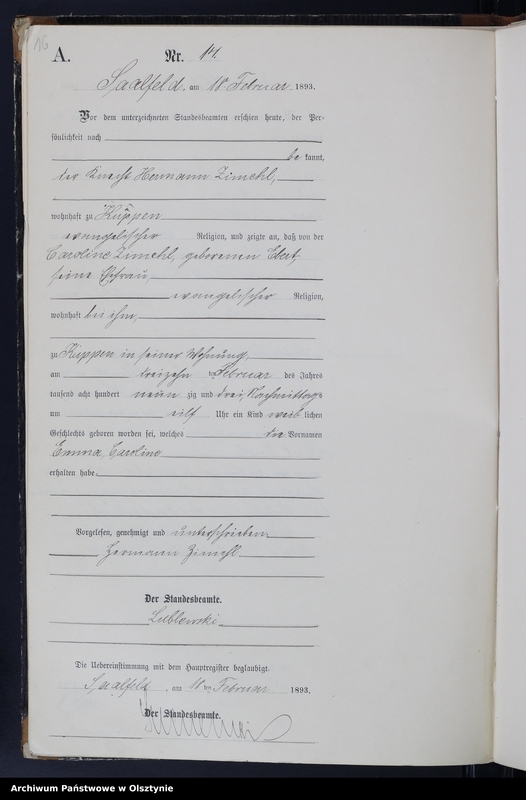 16
A.
Nr. 14.
Saalfeld, am 18 Februar 1893.
Vor dem unterzeichneten Standesbeamten erschien heute, der Per-
sönlichkeit nach
be kannt,
der Knecht Hermann Zimehl,
wohnhaft zu Kuppen
evangelischer Religion, und zeigte an, daß von der
Caroline Zimehl, geborenen Ebert,
seine Ehefrau,
evangelischer Religion,
wohnhaft bei ihm,
zu Kuppen in seiner Wohnung,
am dreizehn ten Februar des Jahres
tausend acht hundert neun zig und drei, Nachmittags
um eilf Uhr ein Kind weib lichen
Geschlechts geboren worden sei, welches die Vornamen
Emma Caroline
erhalten habe.
Vorgelesen, genehmigt und unterschrieben
Hermann Zimehl
Der Standesbeamte.
Lublewski
Die Uebereinstimmung mit dem Hauptregister beglaubigt.
Saalfeld, am 18 ten Februar 1893.
Der Standesbeamte.
Archiwum Państwowe w Olsztynie